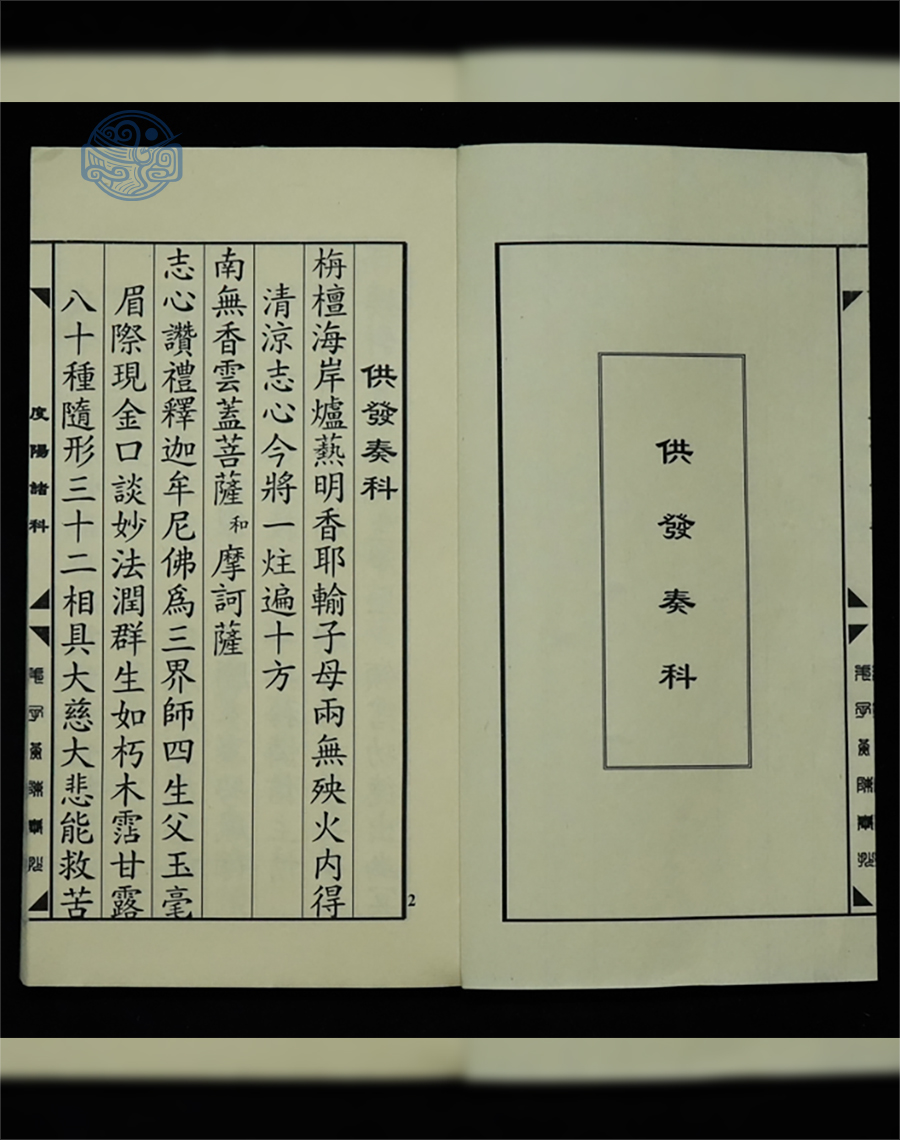 供發奏科
供發奏科
栴檀海岸爐爇明香耶輸子母兩無殃火内得
清涼志心今將一炷遍十方
南無香雲蓋菩薩和摩訶薩
志心讚禮釋迦牟尼佛爲三界師四生父玉毫
眉際現金口談妙法潤群生如朽木霑甘露
八十種隨形三十二相具大慈大悲能救苦
度陽諸科
2